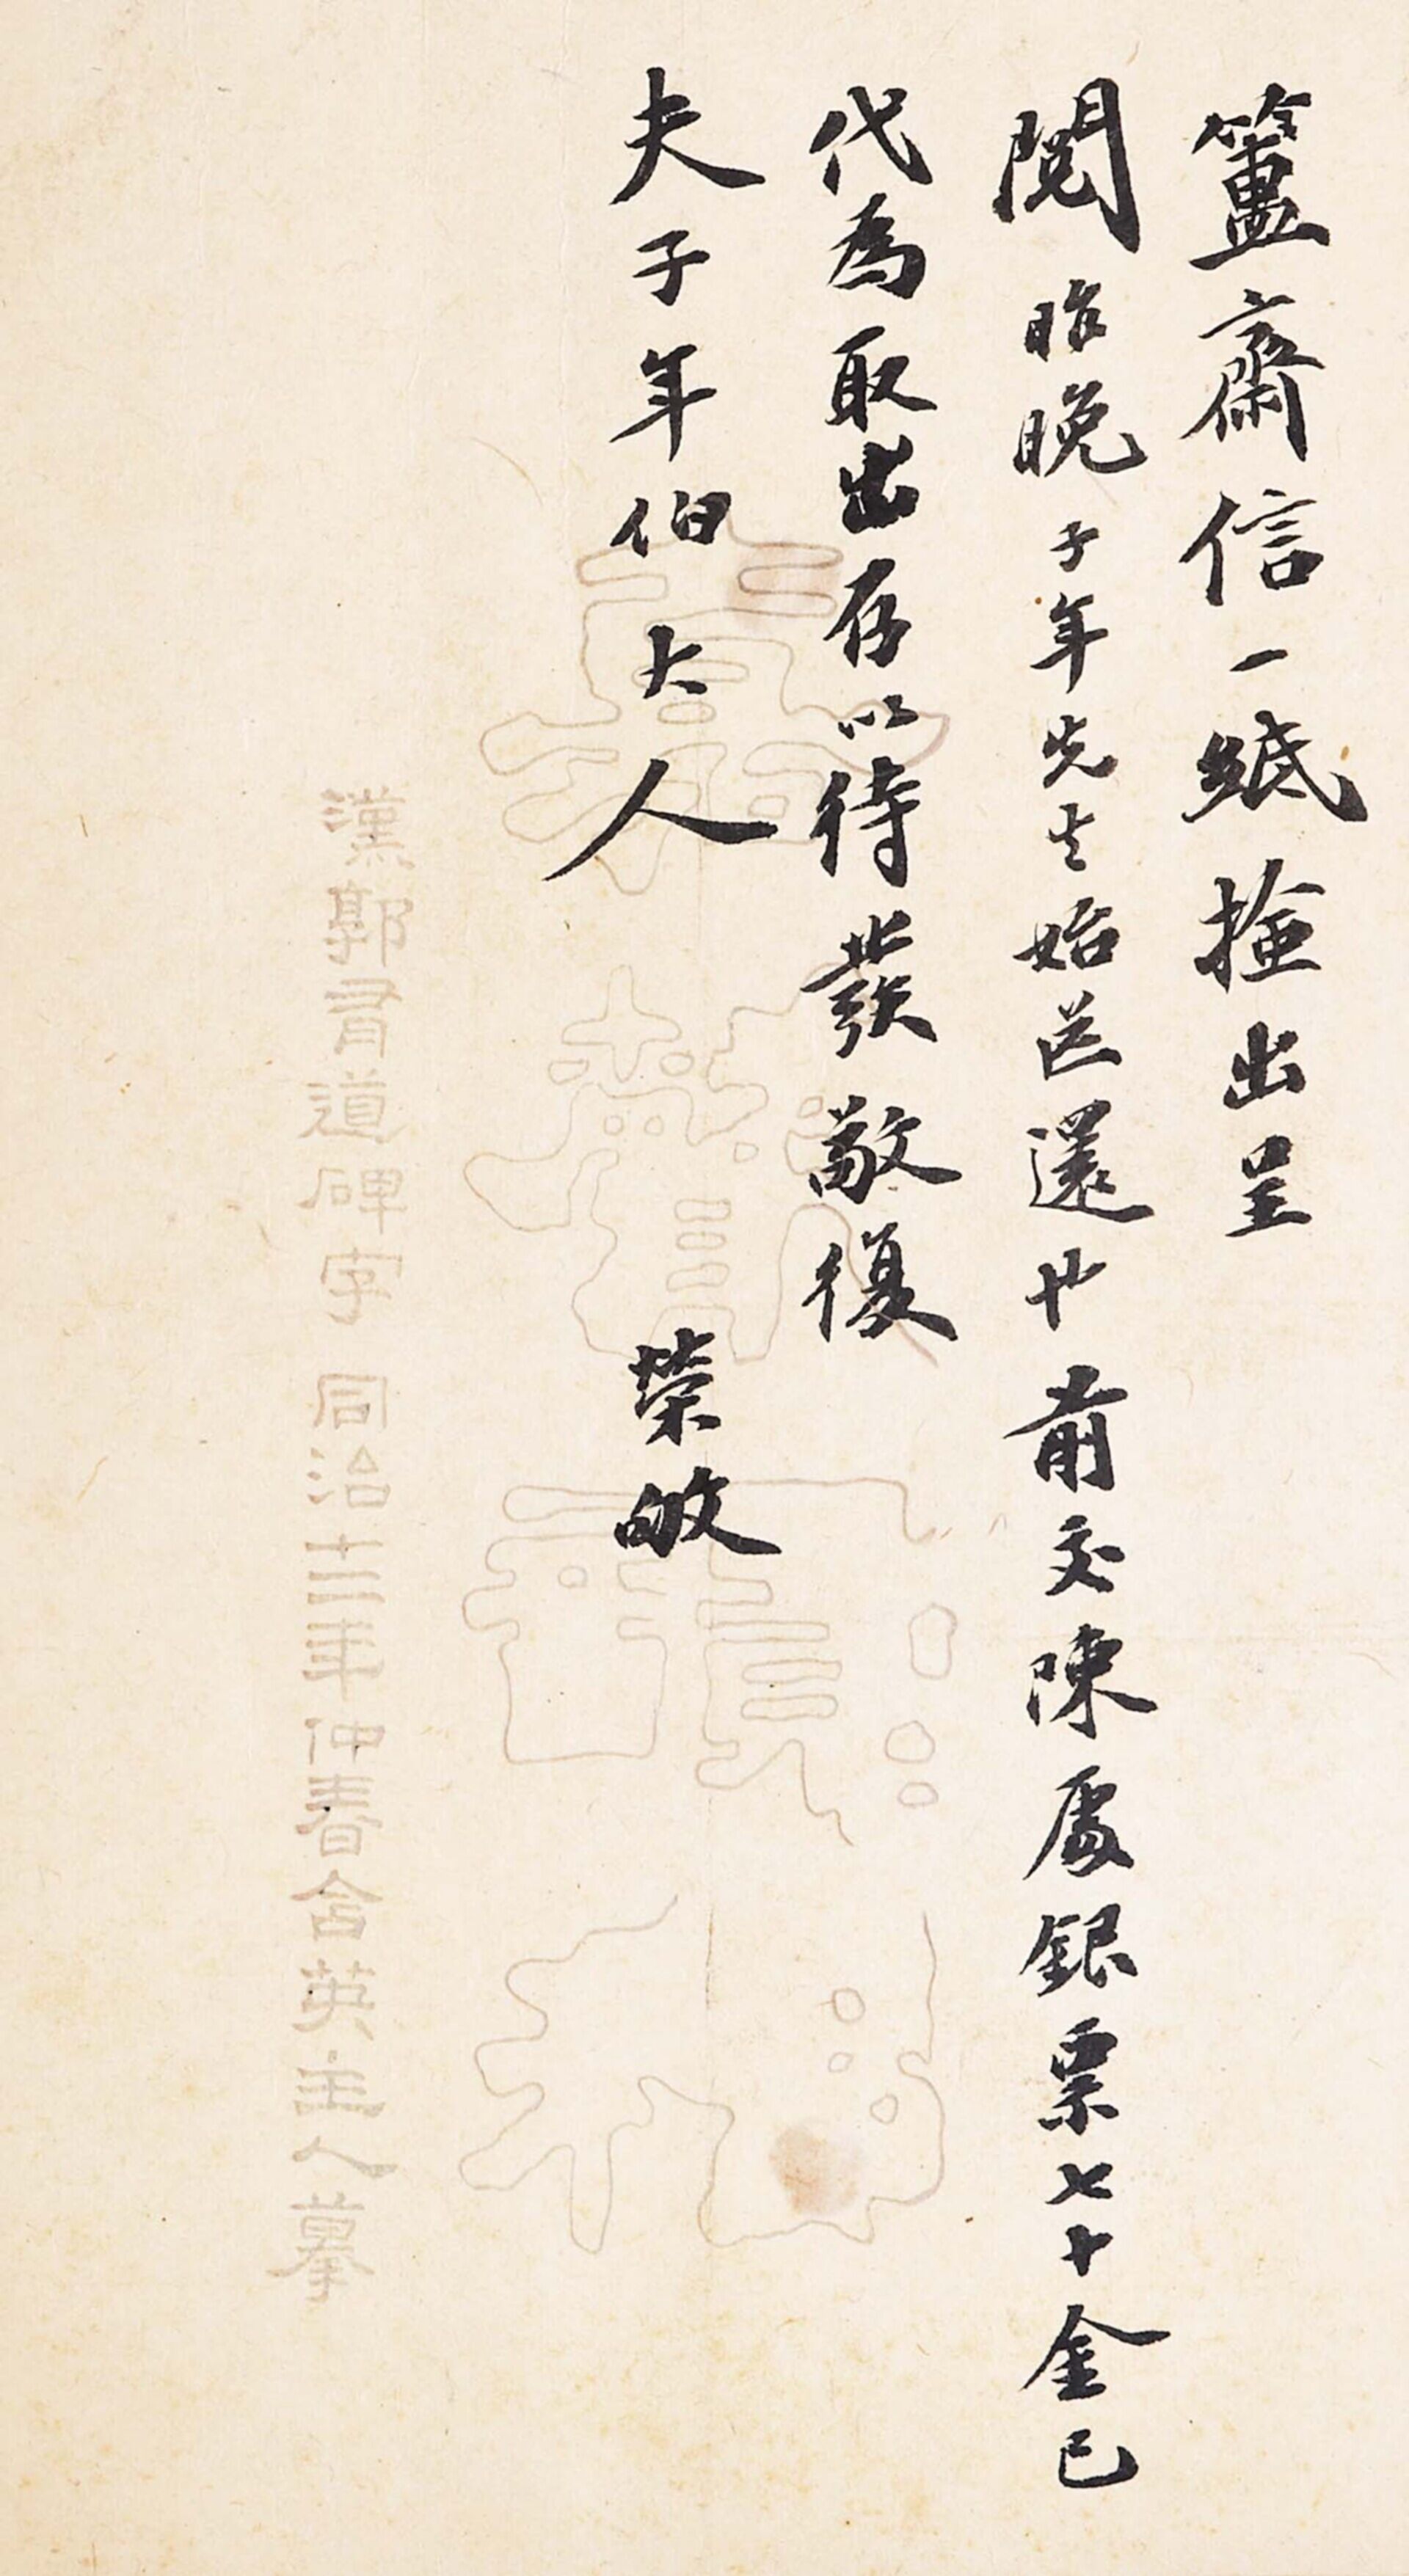 簠齋信一紙撿出呈
閱昨晚子年先生始送還廿前交陳處銀票七十金已
代為取出存以待發敬復
夫子年伯大人 榮敂
漢郭有道碑字 同治十二年仲春含英主人摹